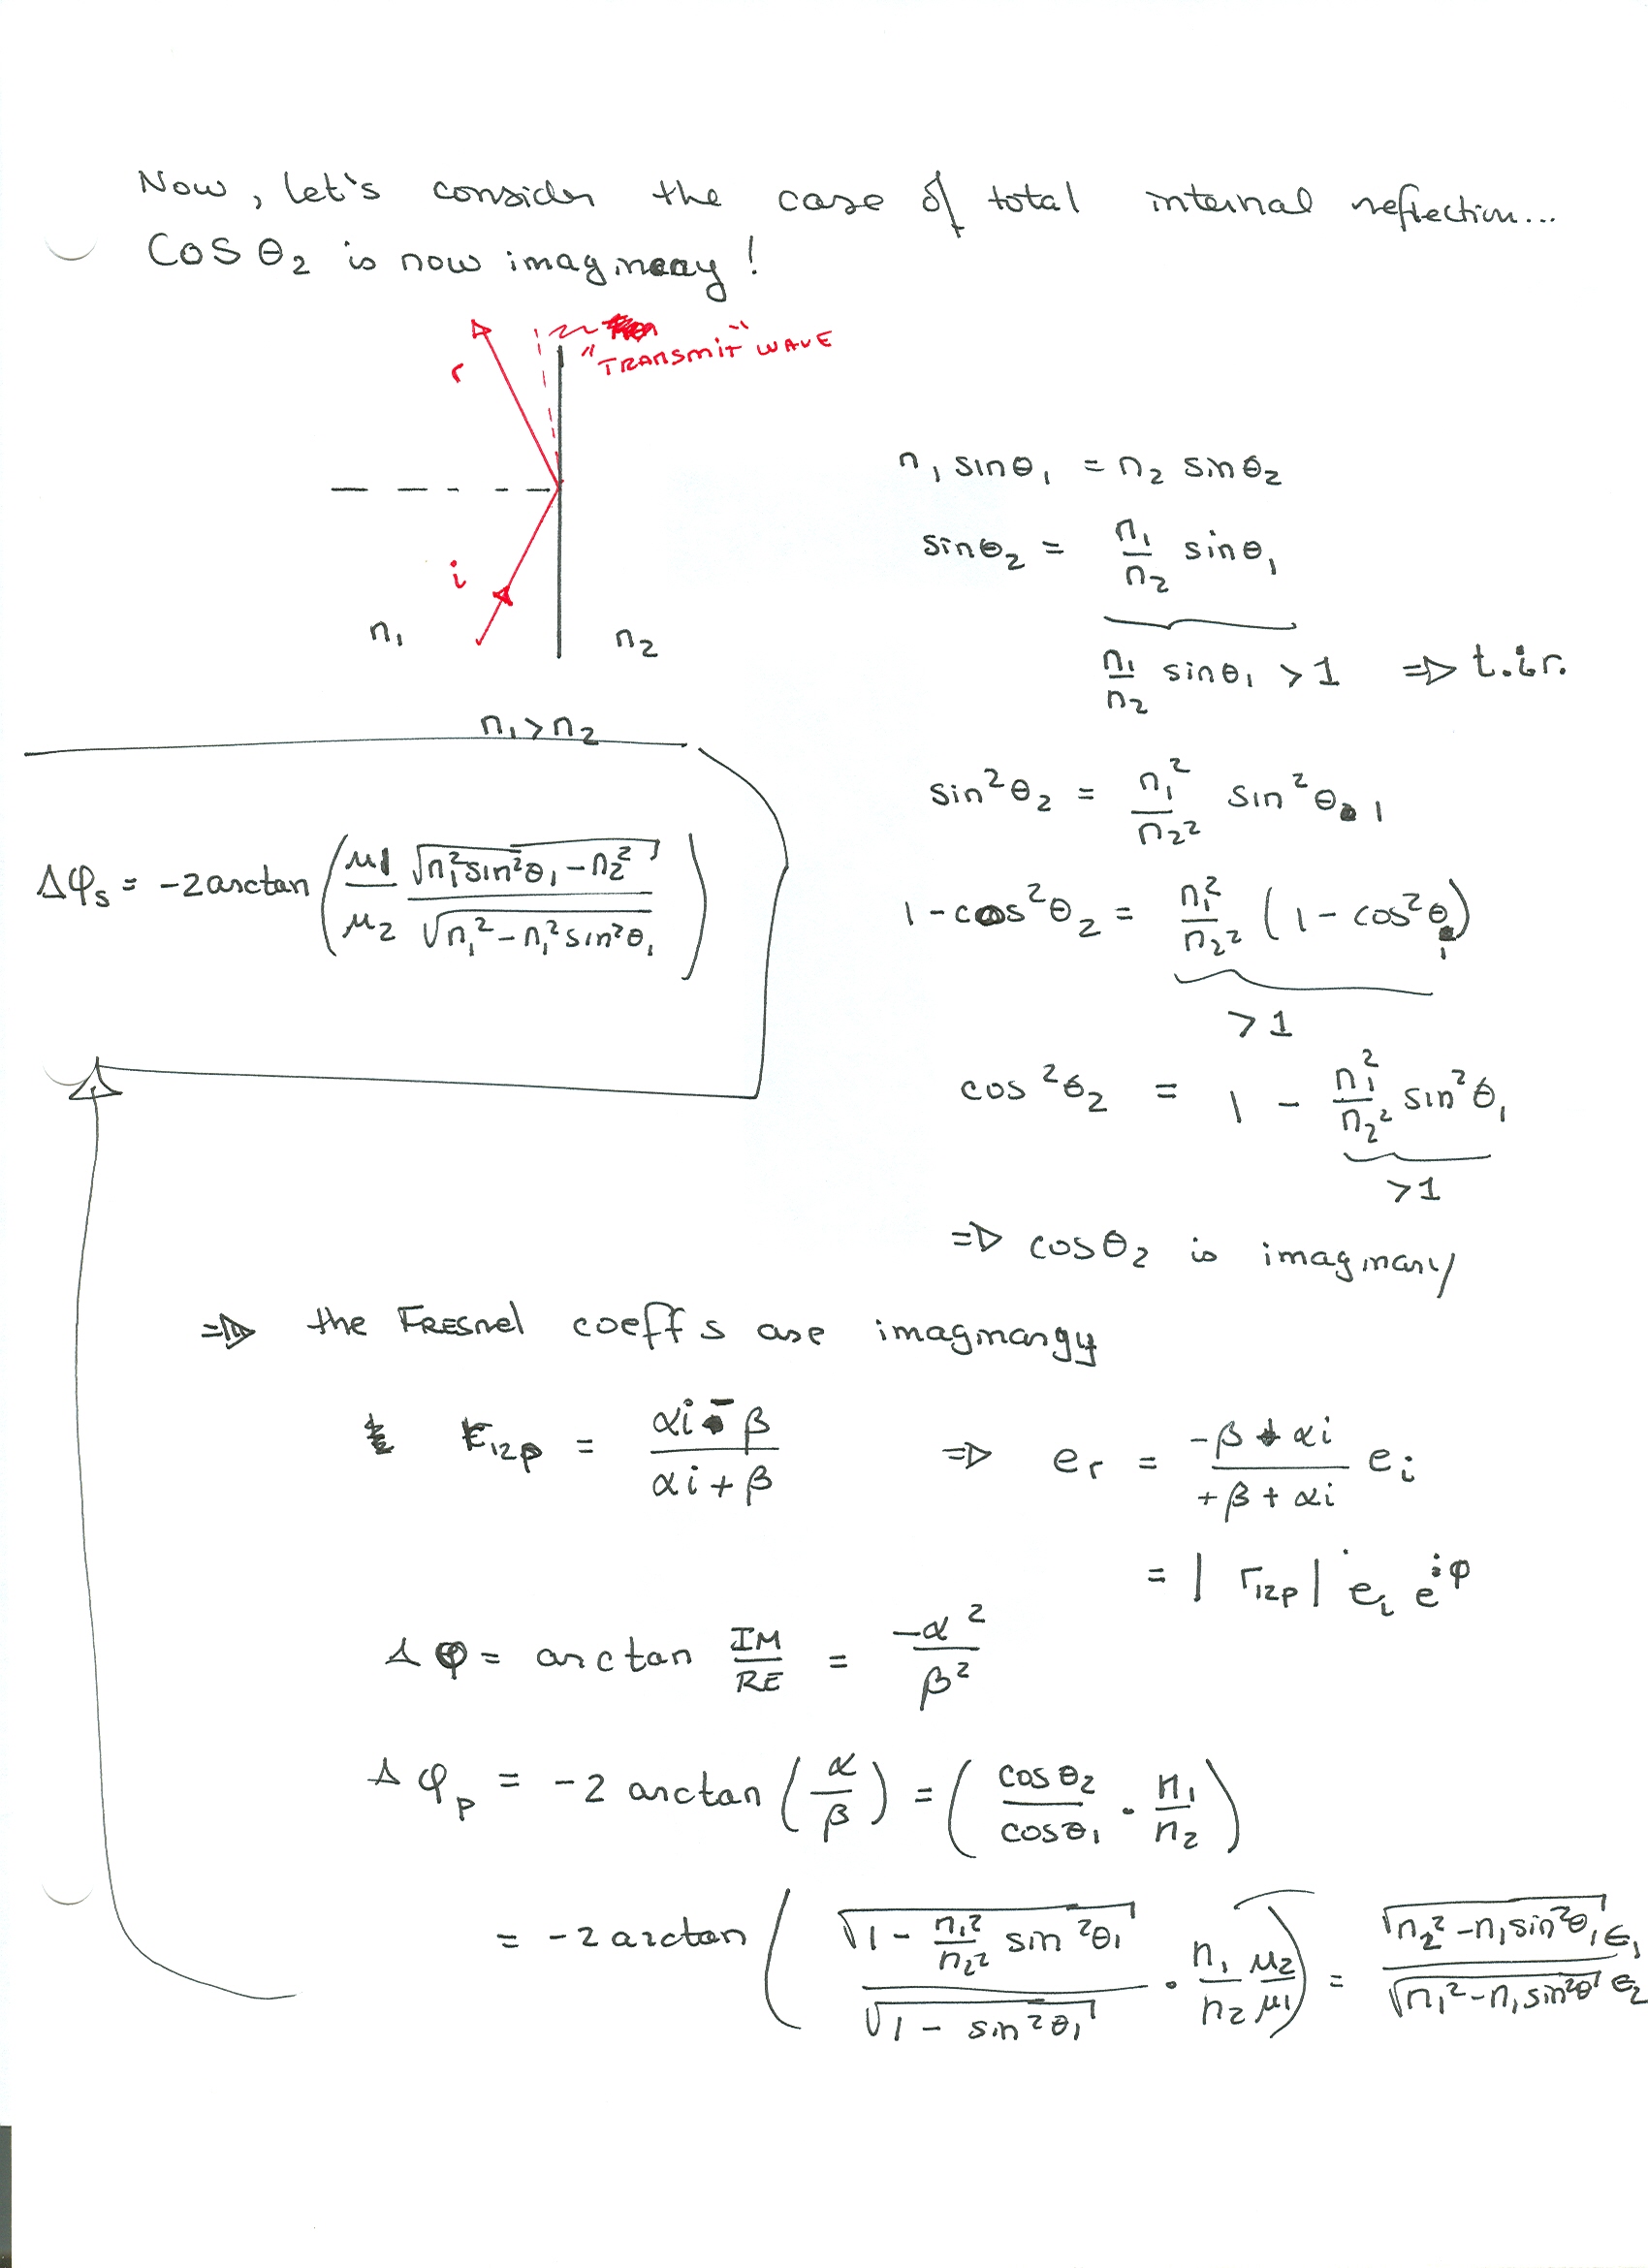 Now, let's consider the case of total internal reflection...
COS θ₂ is now imaginary!
"TRANSMIT" WAVE
r
i
n₁
n₂
n₁ > n₂
n₁ sinθ₁ = n₂ sinθ₂
sinθ₂ = n₁/n₂ sinθ₁
n₁/n₂ sinθ₁ > 1 ⇒ t.i.r.
sin²θ₂ = n₁²/n₂² sin²θ₁
1 - cos²θ₂ = n₁²/n₂² (1 - cos²θ₁)
> 1
cos²θ₂ = 1 - n₁²/n₂² sin²θ₁
> 1
⇒ cosθ₂ is imaginary
Δφₛ = -2 arctan (μ₁/μ₂ √(n₁² sin²θ₁ - n₂²) / √(n₁² - n₁² sin²θ₁))
⇒ the FRESNEL coeffs are imaginary
r₁₂ₚ = (αi - β)/(αi + β) ⇒ eᵣ = (-β + αi)/(+β + αi) eᵢ
= |r₁₂ₚ| eᵢ e^{iφ}
Δφ = arctan IM/RE = -α²/β²
Δφₚ = -2 arctan (α/β) = (cosθ₂/cosθ₁ · n₁/n₂)
= -2 arctan (√(1 - n₁²/n₂² sin²θ₁) / √(1 - sin²θ₁) · n₁/n₂ μ₂/μ₁) = √(n₂² - n₁ sin²θ₁) ε₁ / √(n₁² - n₁ sin²θ) ε₂